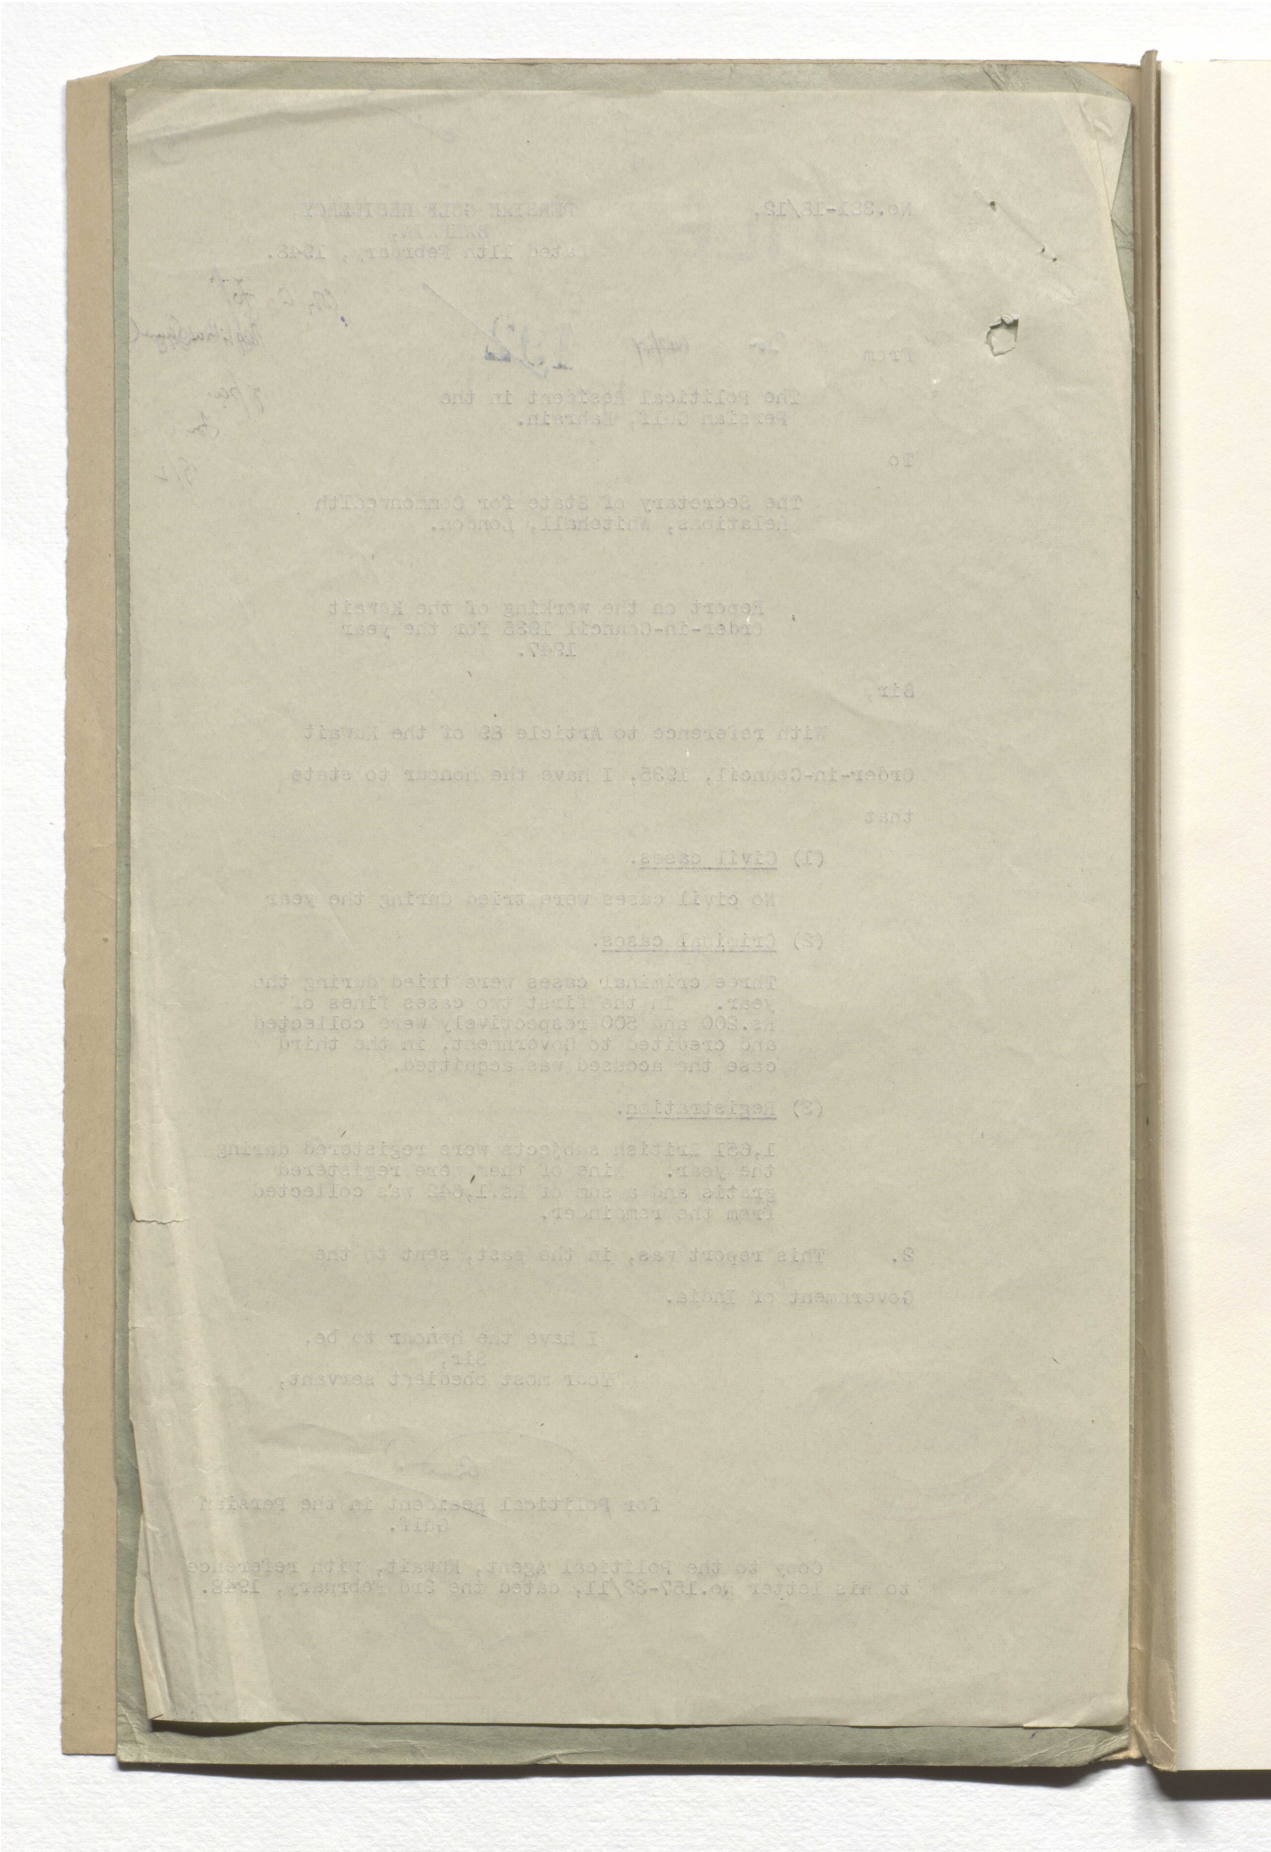 PERSIAN GULF RESIDENCY
BAHRAIN.
Dated 11th February, 1948.
From
The Political Resident in the
Persian Gulf, Bahrain.
To
The Secretary of State for Commonwealth
Relations, Whitehall, London.
Report on the working of the Kuwait
Order-in-Council 1935 for the year
1947.
Sir,
With reference to Article 89 of the Kuwait
Order-in-Council, 1935, I have the honour to state
that
(1) Civil cases.
No civil cases were tried during the year
(2) Criminal cases.
Three criminal cases were tried during the
year. In the first two cases fines of
Rs.200 and 500 respectively were collected
and credited to Government. in the third
case the accused was acquitted.
(3) Registration.
1,651 British subjects were registered during
the year. Nine of them were registered
gratis and a sum of Rs.1,642 was collected
from the remainder.
2. This report was, in the past, sent to the
Government of India.
I have the honour to be,
Sir,
Your most obedient servant,
for Political Resident in the Persian
Gulf.
Copy to the Political Agent, Kuwait, with reference
to his letter No.157-32/11, dated the 3rd February, 1948.